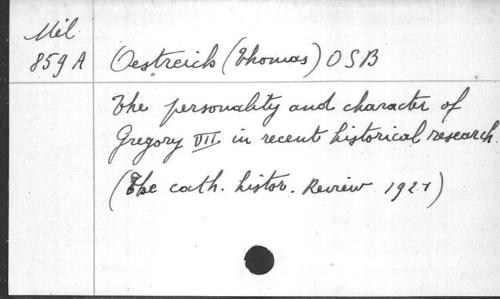 Mil
859 A
Oestreich (Thomas) OSB
The personality and character of
Gregory VII in recent historical research.
(The cath. histor. Review 1921)